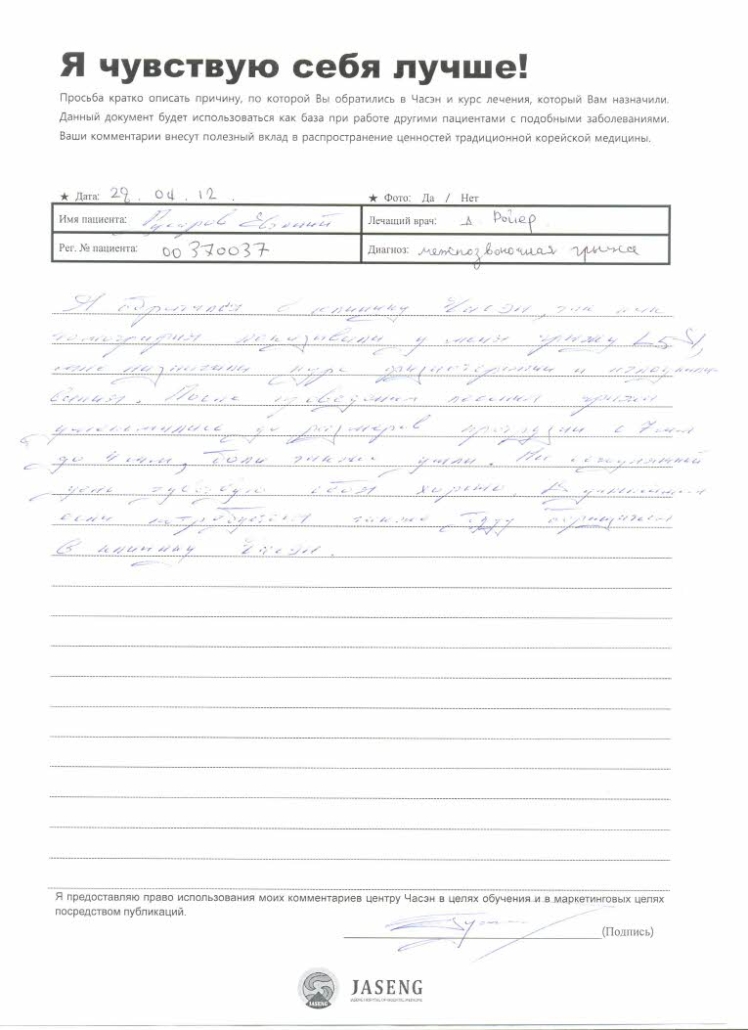 Я чувствую себя лучше!
Просьба кратко описать причину, по которой Вы обратились в Часэн и курс лечения, который Вам назначили.
Данный документ будет использоваться как база при работе другими пациентами с подобными заболеваниями.
Ваши комментарии внесут полезный вклад в распространение ценностей традиционной корейской медицины.
★ Дата: 29.04.12. ★ Фото: Да / Нет
Имя пациента: Евгений Лечащий врач: Д. Ройер
Рег. № пациента: 00370037 Диагноз: межпозвоночная грыжа
Я обратился в клинику Часэн, так как
томография показывала у меня грыжу L5-S1,
мне назначили курс и
После проведения грыжа
до размеров с 7 мм
до 4 мм, боли также ушли. На сегодняшний
день чувствую себя хорошо. В дальнейшем
если потребуется также буду обращаться
в клинику Часэн.
Я предоставляю право использования моих комментариев центру Часэн в целях обучения и в маркетинговых целях
посредством публикаций.
(Подпись)
JASENG
JASENG